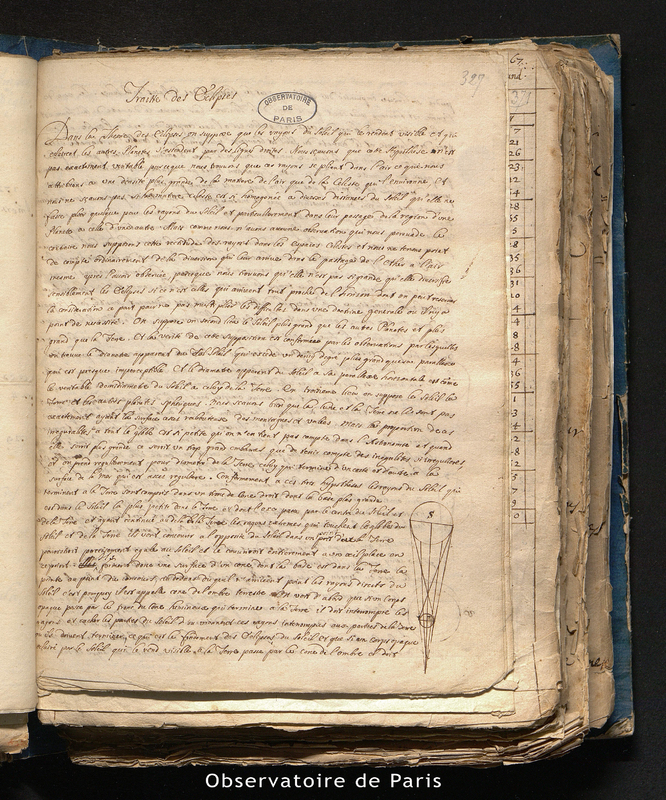 329
Traitté des Eclipses
OBSERVATOIRE
DE
PARIS
Dans la theorie des Eclipses on suppose que les rayons du Soleil qui le rendent visible et qui
les autres Planetes s'estendent par des lignes droites. Nous sçavons que cette n'est
pas exactement veritable parceque nous trouvons que ces rayons se plient dans l'air ce que nous
attribuons a une densité plus grande de la matiere de l'air que de la Celeste qui l'environne Et
faire plier quelque peu les rayons du Soleil et particulierement dans leur passage de la region d'une
Planete a celle d'une autre. Mais comme nous n'avons aucune observation qui nous persuade le
contraire nous supposons cette rectitude des rayons dans les espaces Celestes et nous ne tenons point
de compte ordinairement de la dimension qui leur arrive dans le passage de l'Ether a l'air
mesme apres l'avoir observée parceque nous trouvons qu'elle n'est pas si grande qu'elle
sensiblement les Eclipses si ce n'est celles qui arrivent tout proches de l'horison dont on peut
la consideration a part pour ne pas multiplier les difficultés dans une doctrine generale ou il n'y a
point de necessité. On suppose en second lieu le Soleil plus grand que les autres Planetes et plus
grand que la Terre. Et la verité de cette supposition est confirmée par les observations par lesquelles
on trouve le diametre apparent du Soleil qui excede un demy degré plus grand que sa parallaxe
qui est presque imperceptible. Et le diametre apparent du Soleil a sa parallaxe horisontale est comme
le veritable demidiametre du Soleil a celuy de la Terre. En troisieme lieu on suppose le Soleil la
Terre et les autres planetes spheriques. Bien sçavons bien que la lune et la Terre ne le sont pas
exactement ayant les surfaces assez raboteuses des montagnes et vallées. Mais la proportion de ces
inegualités a tout le globe est si petite qu'on n'en tient pas compte dans l'Astronomie et quand
elle seroit plus grande ce seroit un trop grand embaras que de tenir compte des inegalités si irregulieres
et on prend regulierement pour diametre de la Terre celuy qui termine de un costé et d'autre a la
surface de la mer qui est assez reguliere. Conformement a ces trois hypotheses les rayons du Soleil qui
terminent a la Terre sont compris dans un tronc de cone droit dont la base plus grande
est dans le Soleil la plus petite dans la Terre et dont l'axe passe par le centre du Soleil et
de la Terre et ayant continué au dela de la Terre les rayons externes qui touchent les globes du
Soleil et de la Terre ils vont concourir a l'opposite du Soleil dans un point d'ou la Terre
paroistroit precisement egale au Soleil et le couvriroit entierement a un oeil placé au
dans une surface d'un cone dont la base est dans la Terre la
pointe au point du concours, au dedans duquel n'arrivent point les rayons directs du
Soleil c'est pourquoy il est appellé cone de l'ombre terrestre. On voit d'abord que si un corps
opaque passe par le tronc du cone lumineux qui termine a la Terre il doit interrompre les
rayons et cacher les parties du Soleil d'ou viennent ces rayons interrompus aux parties de la Terre
ou ils devoient terminer, ce qui est le fondement des Eclipses du Soleil et que si un corps opaque
éclairé par le Soleil qui le rend visible a la Terre passe par le cone de l'ombre il doit
S
67
7
21
26
23
12
28
55
5
8
35
36
31
10
4
4
8
8
4
36
55
1
3
4
2
8
2
5
7
9
0
Observatoire de Paris